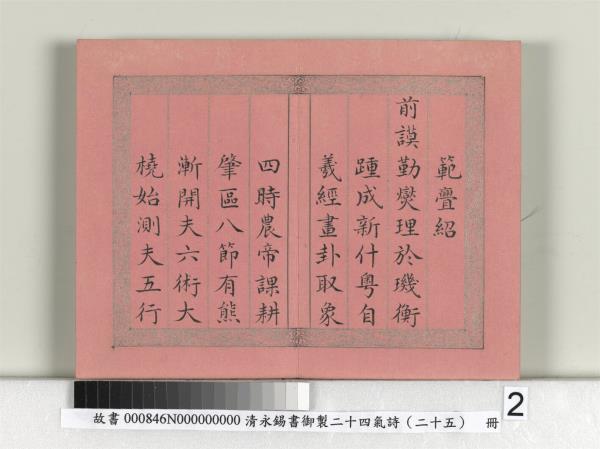 範疊紹
前謨勤爕理於璣衡
踵成新什粤自
羲經畫卦取象
四時農帝課耕
肇區八節有熊
漸開夫六術大
橈始測夫五行
故書 000846N000000000 清永錫書御製二十四氣詩（二十五） 冊
2